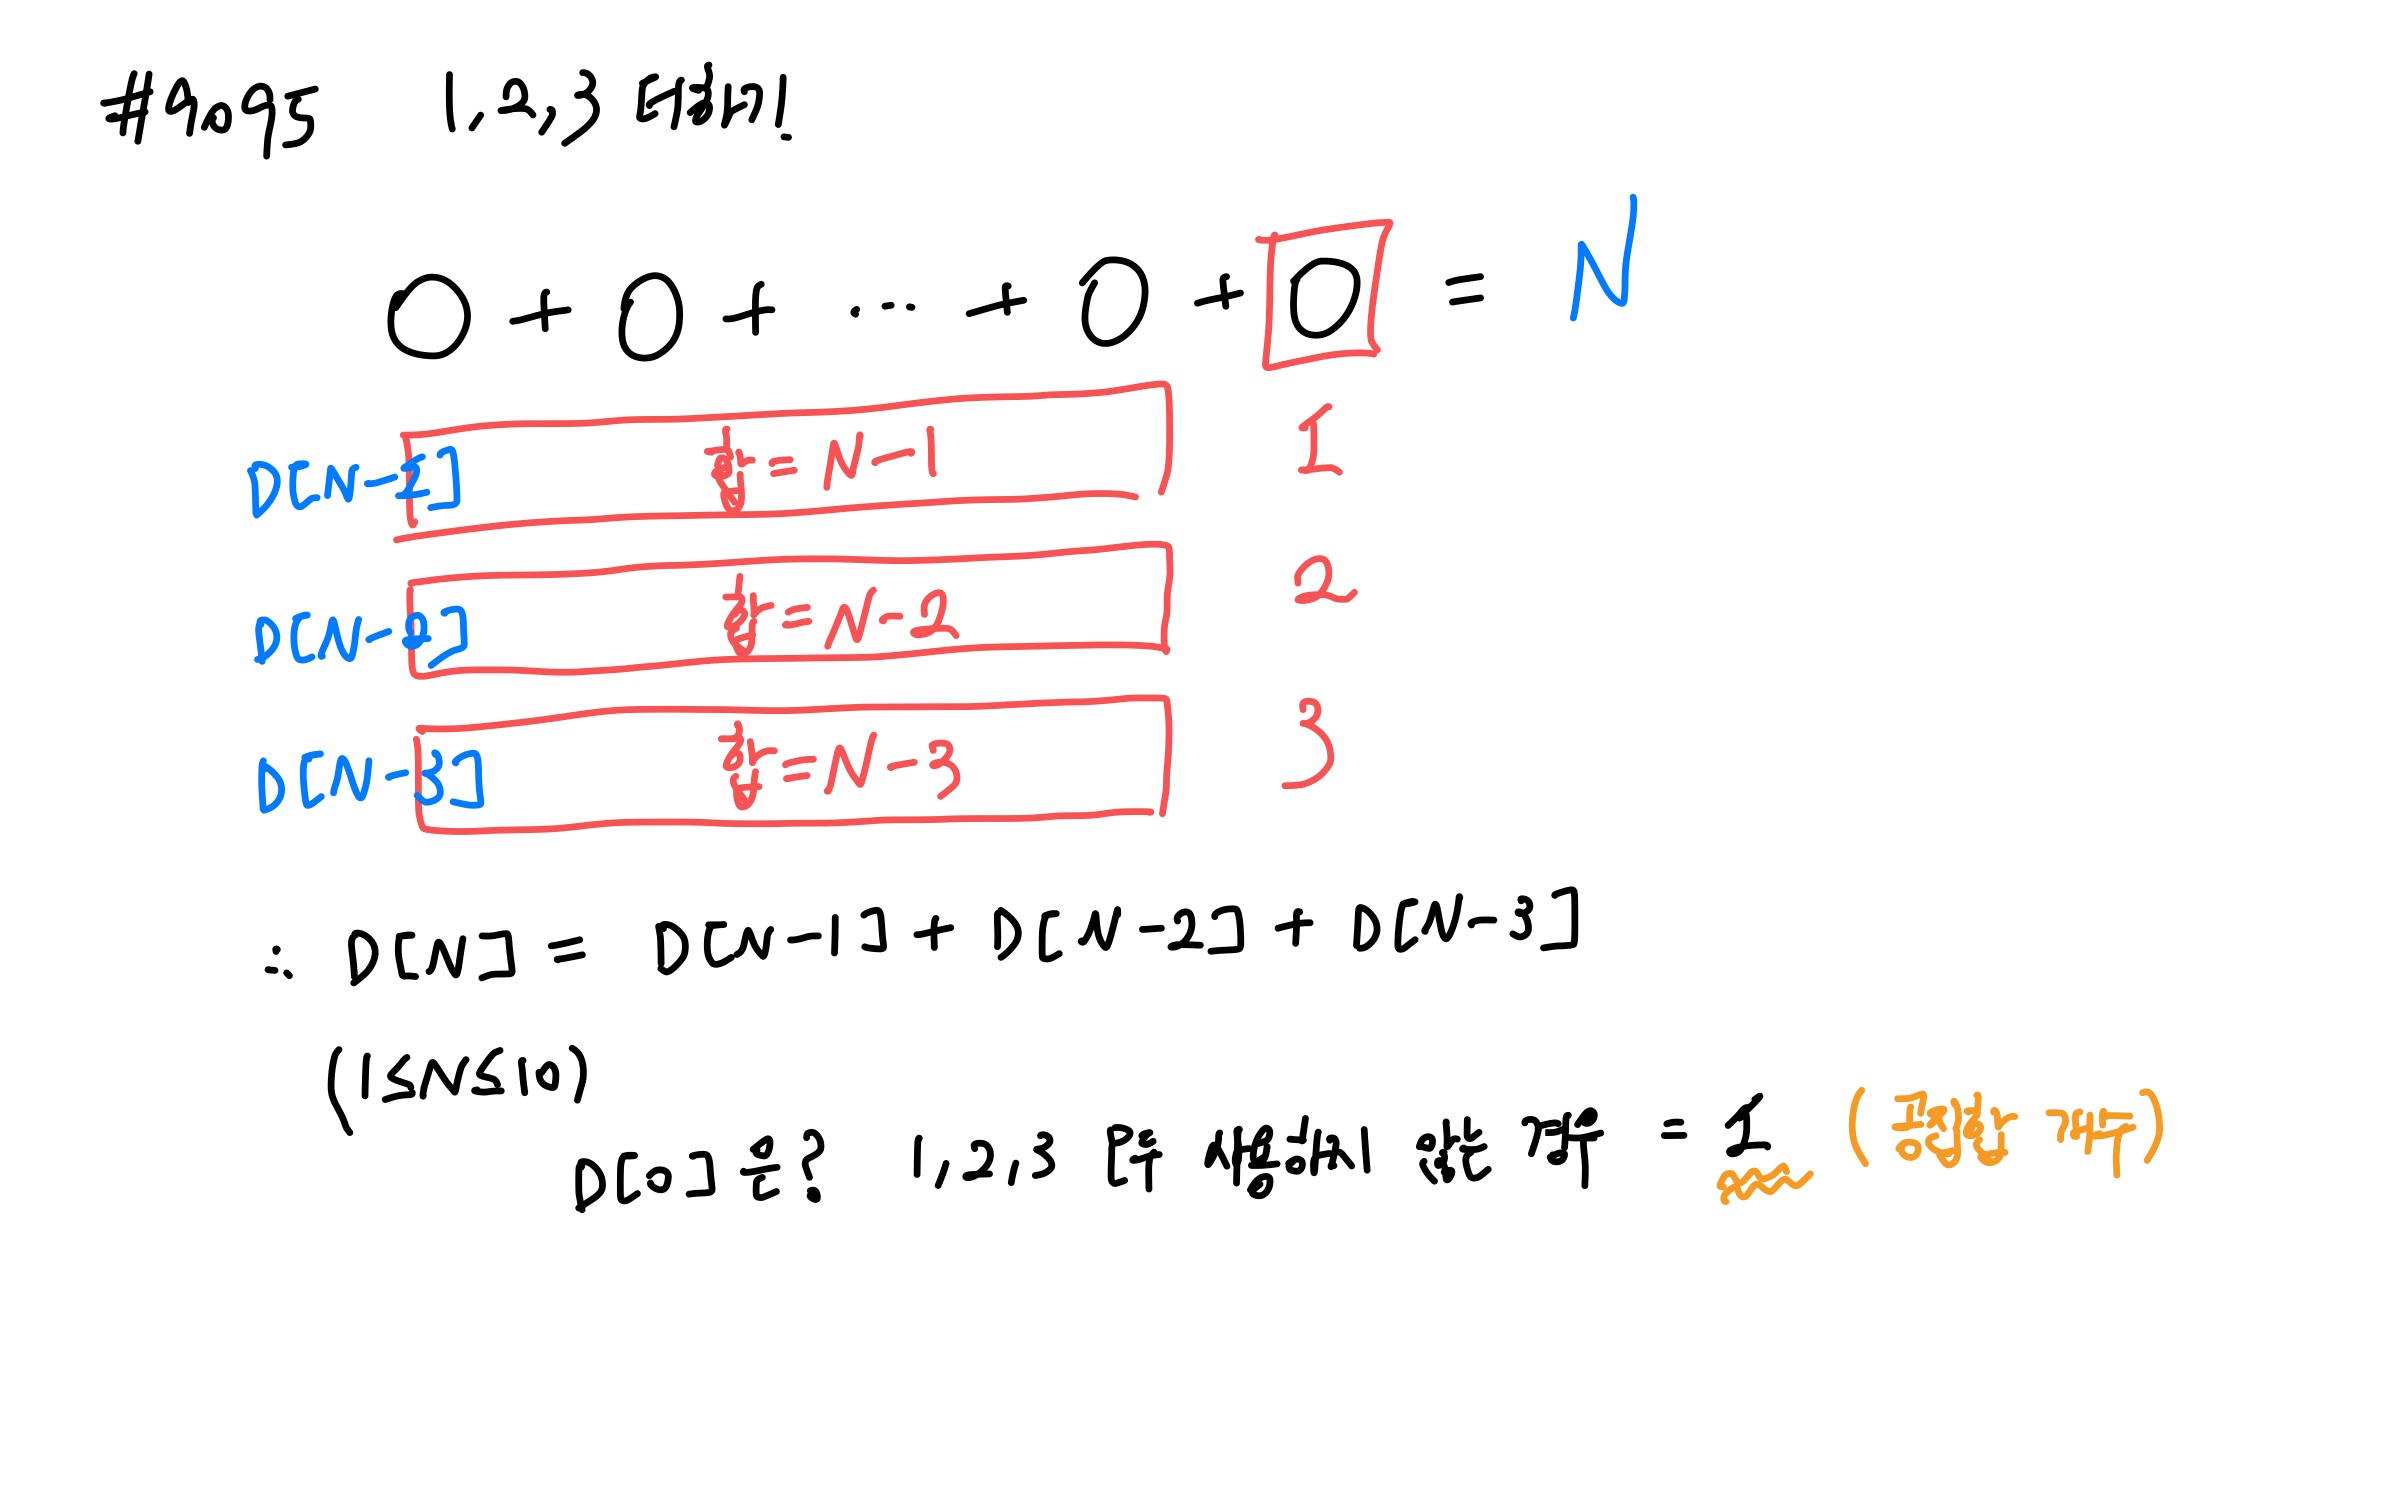 #9095 1,2,3 더하기
O + O + ... + O + O = N
D[N-1] 합 = N-1 1
D[N-2] 합 = N-2 2
D[N-3] 합 = N-3 3
∴ D[N] = D[N-1] + D[N-2] + D[N-3]
(1≤N≤10)
D[0]은? 1,2,3 을 사용해서 만들 경우 = 1 (공집합 개수)